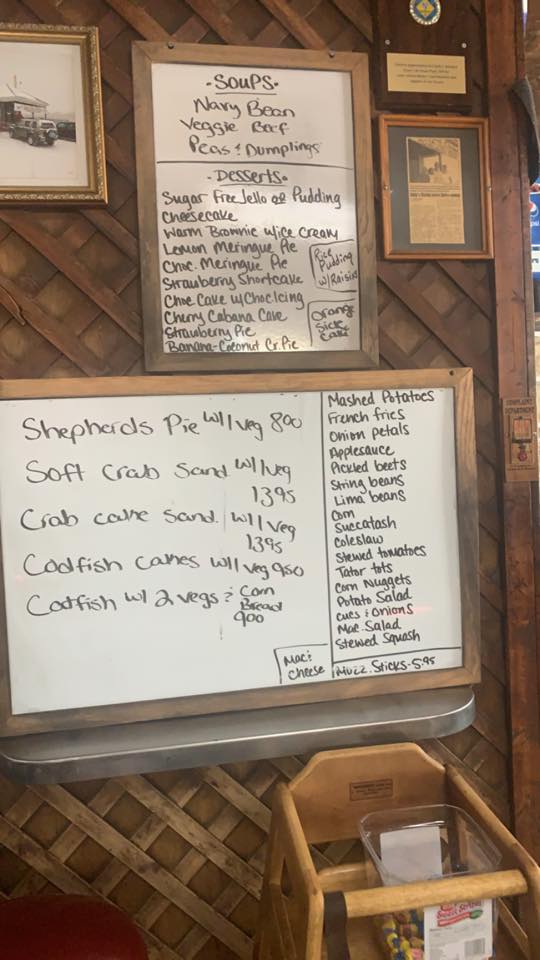 ·Soups·
Navy Bean
Veggie Beef
Peas & Dumplings
·Desserts·
Sugar Free Jello or Pudding
Cheesecake
Warm Brownie w/ice Cream
Lemon Meringue Pie
Choc. Meringue Pie
Strawberry Shortcake
Choc Cake w/Choc Icing
Cherry Cabana Cake
Strawberry Pie
Banana-Coconut Cr. Pie
Rice
Pudding
w/Raisins
Orange
Sicle
Cake
Shepherds Pie w/1 veg 800
Soft Crab Sand w/1 veg
1395
Crab cake Sand. w/1 veg
1395
Codfish Cakes w/1 veg 950
Codfish w/ 2 vegs & Corn
Bread
900
Mac &
Cheese
Mashed Potatoes
French fries
Onion petals
Applesauce
Pickled beets
String beans
Lima beans
Corn
Succatash
Coleslaw
Stewed tomatoes
Tator tots
Corn Nuggets
Potato Salad
cues & Onions
Mac. Salad
Stewed Squash
Muzz. Sticks-5.95
COMPLAINT
DEPARTMENT